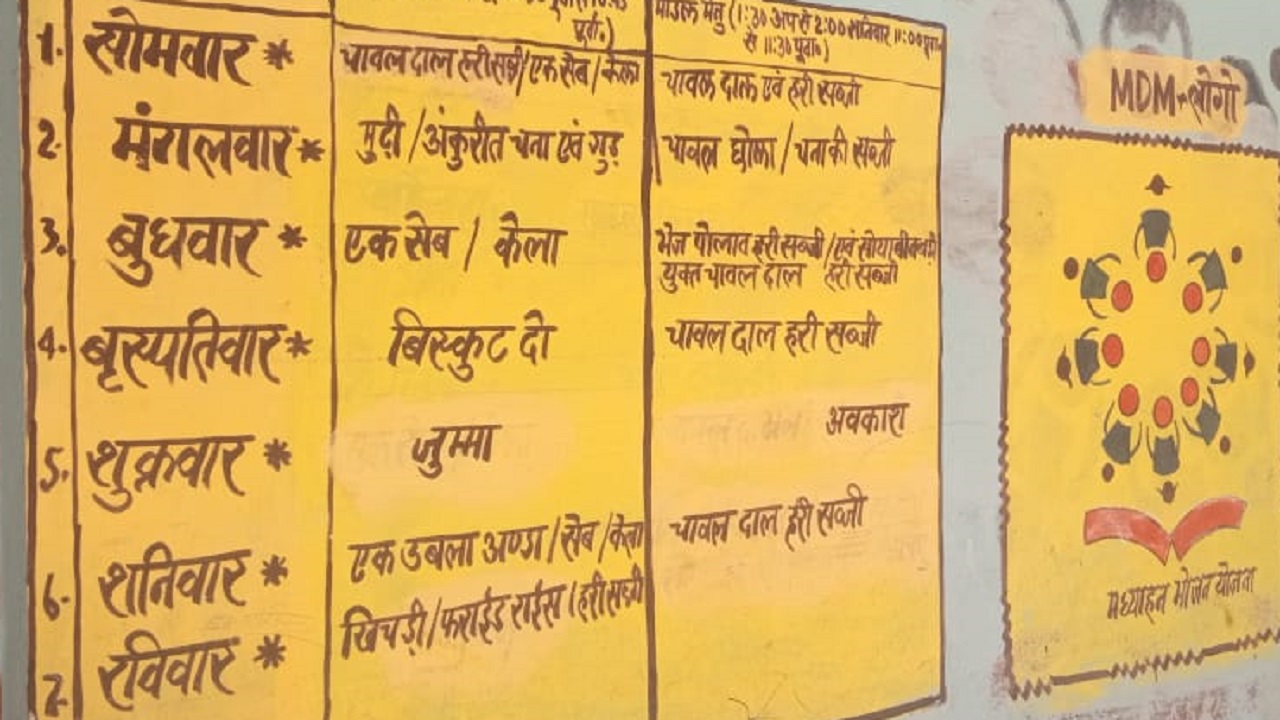 पूर्वा०)
मीडिल मेनु (1:30 अप से 2:00 शनिवार 11:00 पूर्वा०
से 11:30 पूर्वा०)
1. सोमवार * चावल दाल हरी सब्जी/एक सेब/केला चावल दाल एवं हरी सब्जी
2. मंगलवार * मुढ़ी/अंकुरीत चना एवं गुड़ चावल छोला/चना की सब्जी
3. बुधवार * एक सेब / केला भेज पोलाव हरी सब्जी/एवं सोयाबीन बड़ी
युक्त चावल दाल हरी सब्जी
4. बृस्पतिवार * बिस्कुट दो चावल दाल हरी सब्जी
5. शुक्रवार * जुम्मा अवकाश
6. शनिवार * एक उबला अण्डा/सेब/केला चावल दाल हरी सब्जी
7. रविवार * खिचड़ी/फराईड राईस/हरी सब्जी
MDM-लोगो
मध्याहन भोजन योजना